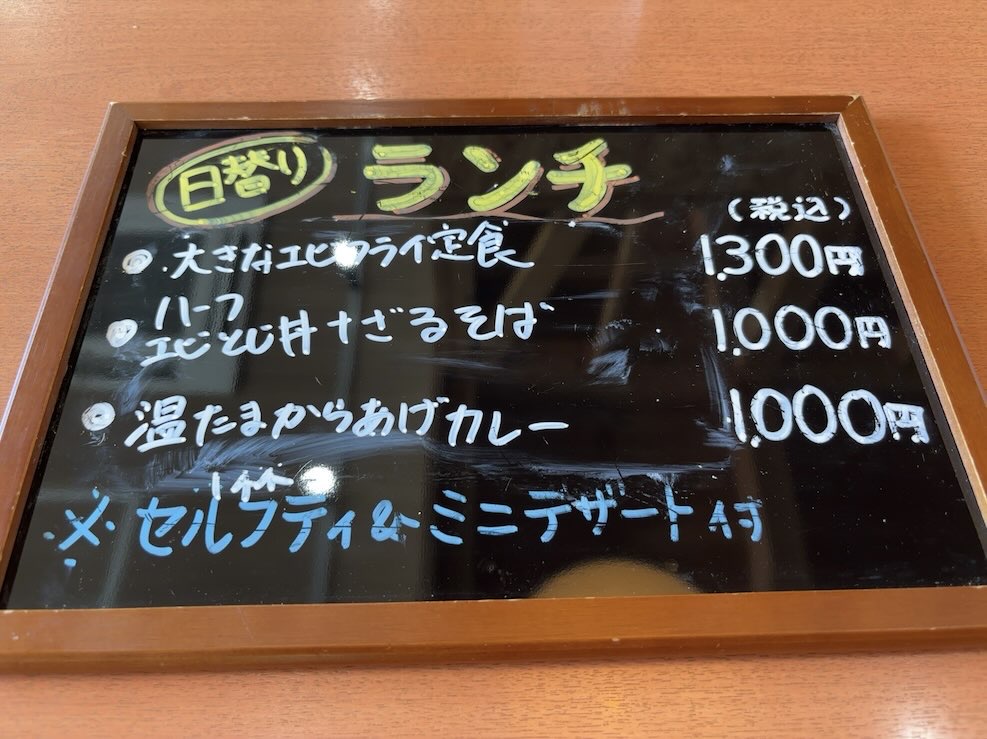 日替り ランチ
(税込)
◎ 大きなエビフライ定食 1,300円
ハーフ
◎ エビとじ丼+ざるそば 1,000円
◎ 温たまからあげカレー 1,000円
1杯
※セルフティ&ミニデザート付